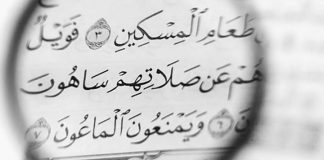 طَعَامِ ٱلْمِسْكِينِ ٣ فَوَيْلٌ
هُمْ عَن صَلَاتِهِمْ سَاهُونَ
٦ وَيَمْنَعُونَ ٱلْمَاعُونَ ٧